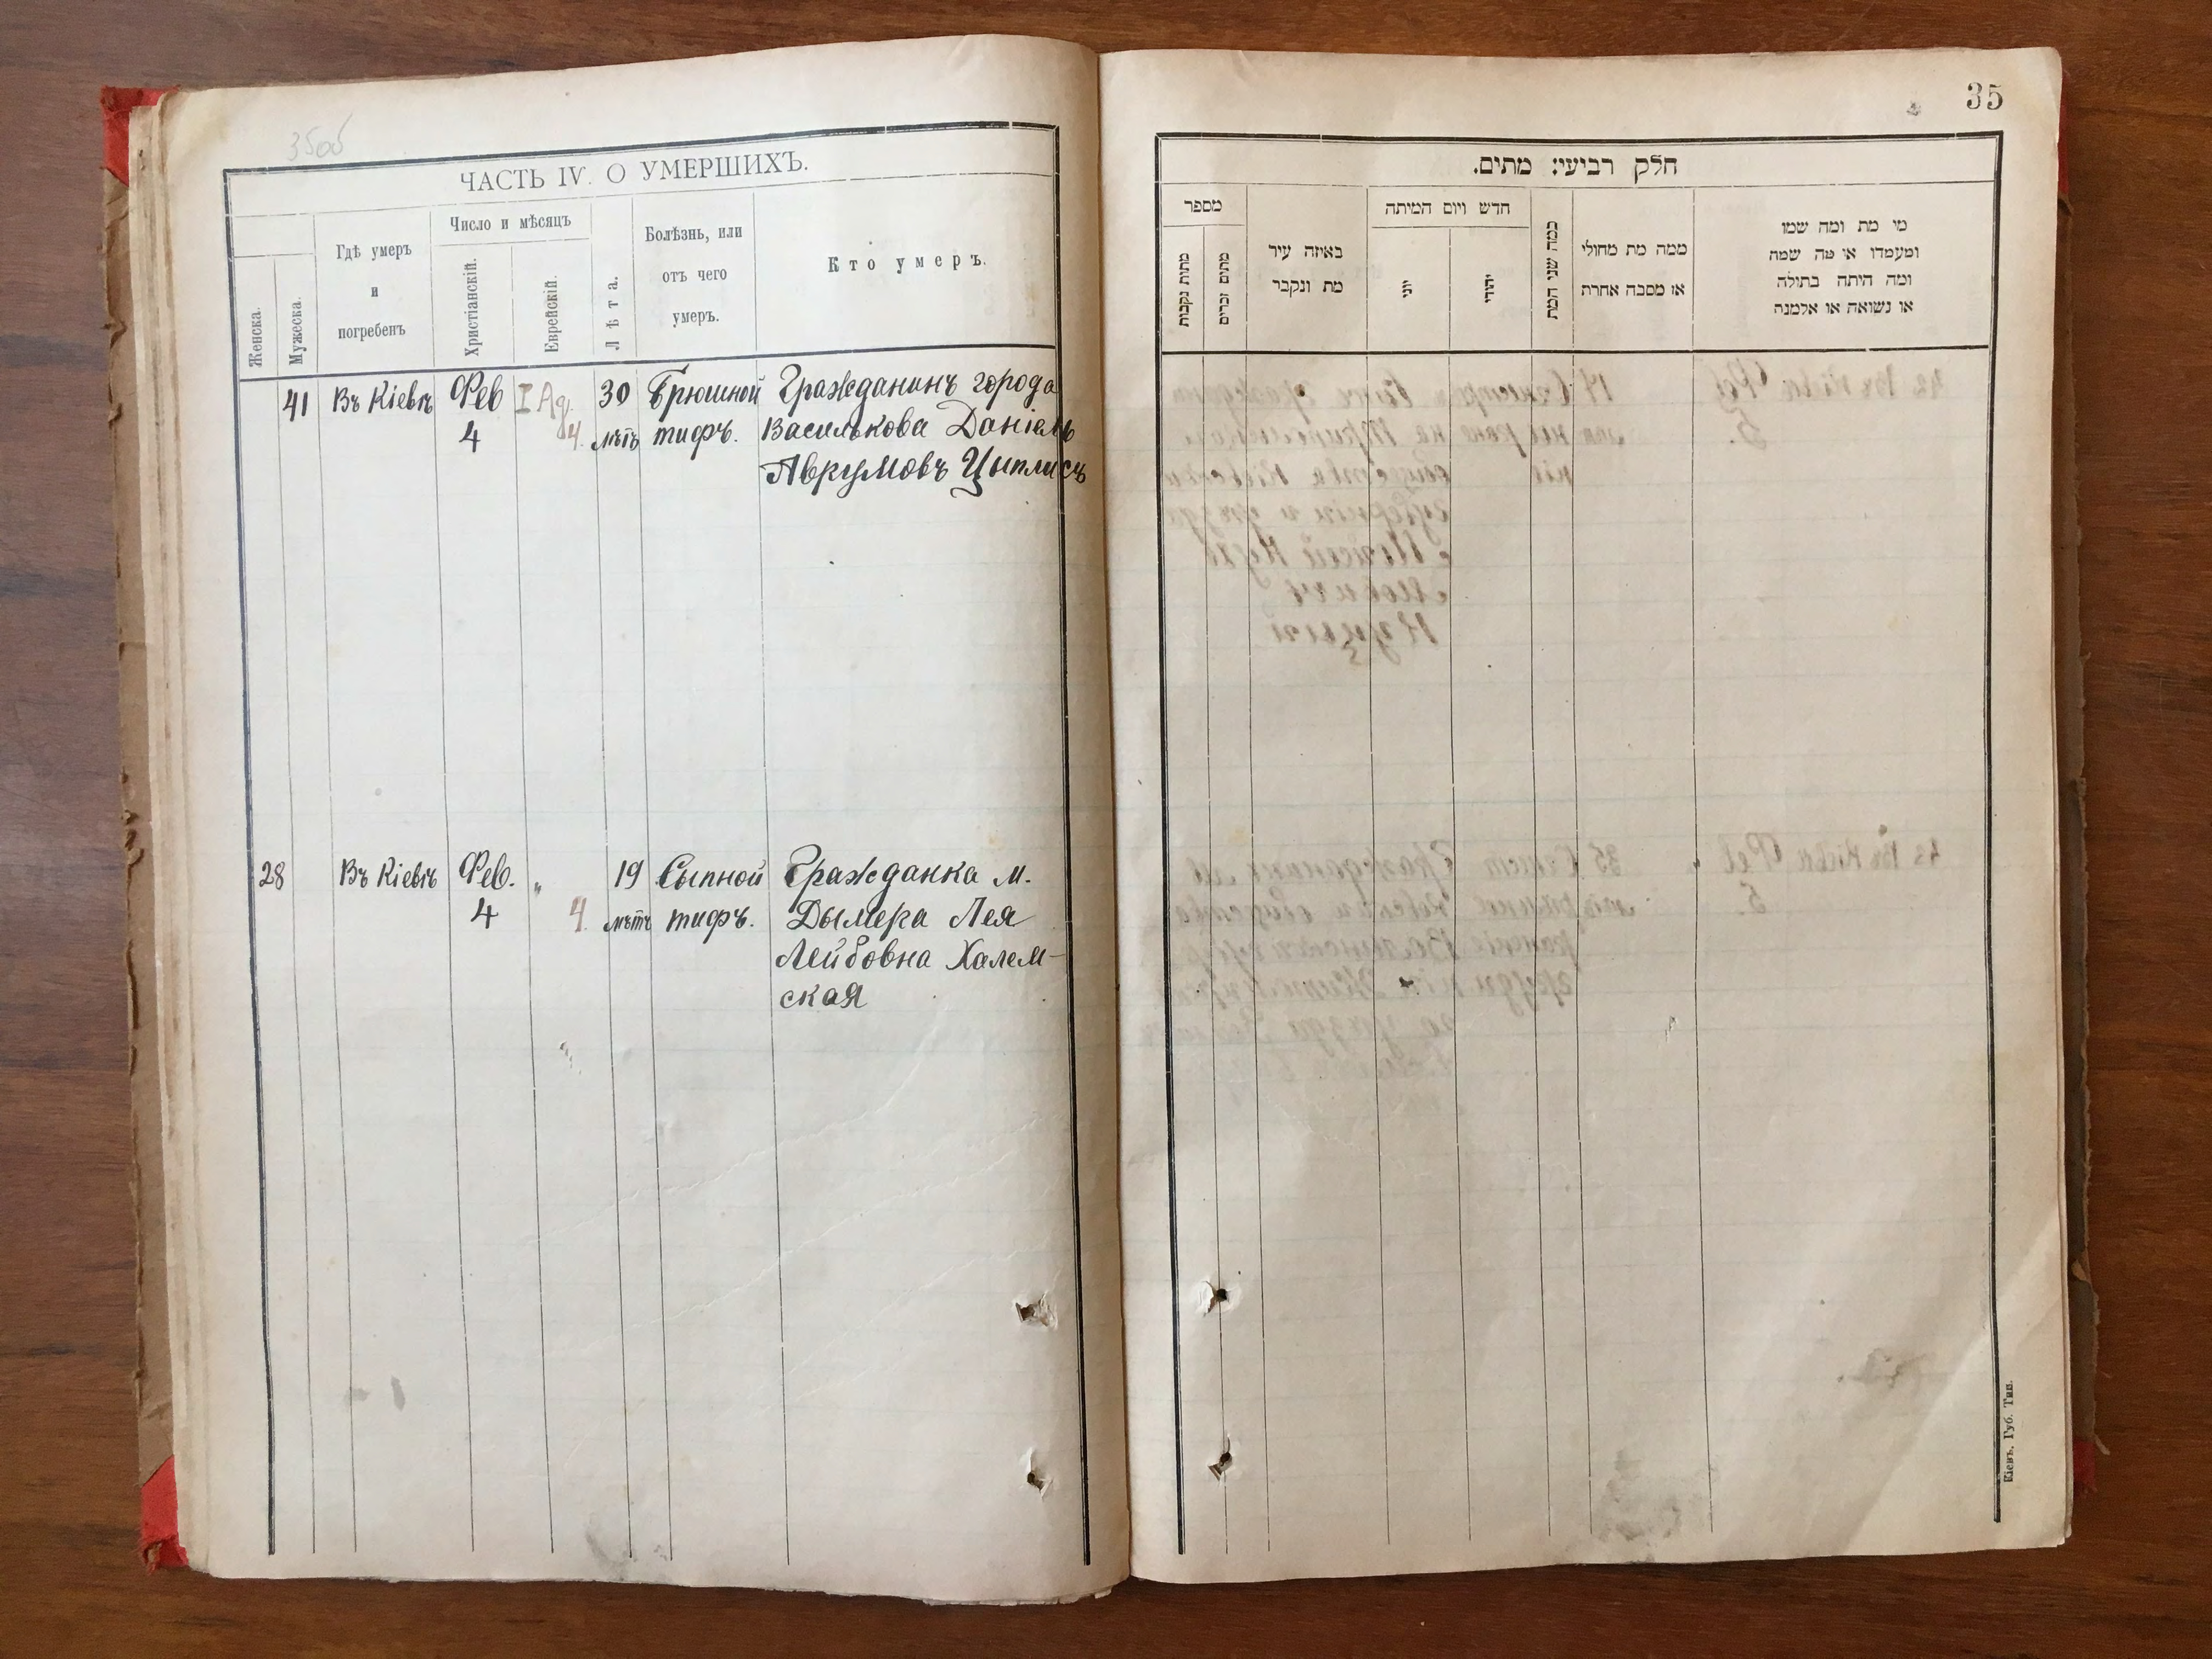 35об
ЧАСТЬ IV. О УМЕРШИХЪ.
Женска.
Мужеска.
Гдѣ умеръ
и
погребенъ
Число и мѣсяцъ
Христіанскій.
Еврейскій.
Лѣта.
Болѣзнь, или
отъ чего
умеръ.
Кто умеръ.
41 Въ Кіевѣ Фев I Ад. 30 Брюшной Гражданинъ города
4 4. лѣтъ тифъ. Василькова Даніель
Аврумовъ Цыплисъ
28 Въ Кіевѣ Фев. „ 19 Сыпной Гражданка м.
4 4. лѣтъ тифъ. Дымера Лея
Лейбовна Халем-
ская
35
חלק רביעי: מתים.
מספר
מתות נקבות
מתים זכרים
באיזה עיר
מת ונקבר
חדש ויום המיתה
יוני
יהודי
כמה שני המת
ממה מת מחולי
או מסבה אחרת
מי מת ומה שמו
ומעמדו או מה שמה
ומה היתה בתולה
או נשואה או אלמנה
Кіевъ, Губ. Тип.